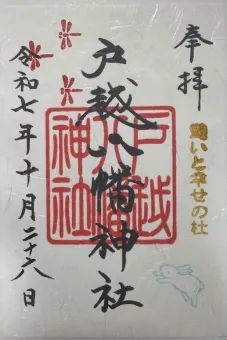 奉拝
いと幸せの杜
戸越八幡神社
戸越
八幡
神社
令和七年十月二十八日